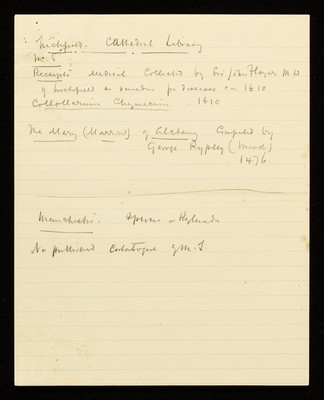 Lichfield. Cathedral Library
MC. 5
Receipts Medical Collected by Sir John Floyer M.D
of Lichfield as remedies for diseases c. 1610
Collollarium Chymicum . 1610
The Mary (Marrow) of Alchemy Compiled by
George Rypley (Monk)
1476
Manchester. Spencer Rylands
No published Catalogue of M.S.